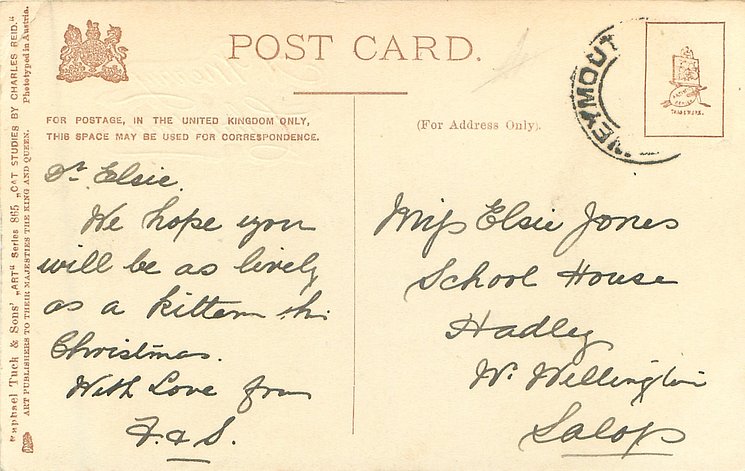 POST CARD.
FOR POSTAGE, IN THE UNITED KINGDOM ONLY,
THIS SPACE MAY BE USED FOR CORRESPONDENCE.
(For Address Only).
WEYMOUT
TRADE MARK.
Dr Elsie.
We hope you
will be as lively
as a kitten this
Christmas.
With Love from
F. & S.
Miss Elsie Jones
School House
Hadley
Nr Wellington
Salop
Raphael Tuck & Sons' „ART“ Series 865 „CAT STUDIES BY CHARLES REID.“
ART PUBLISHERS TO THEIR MAJESTIES THE KING AND QUEEN.
Phototyped in Austria.